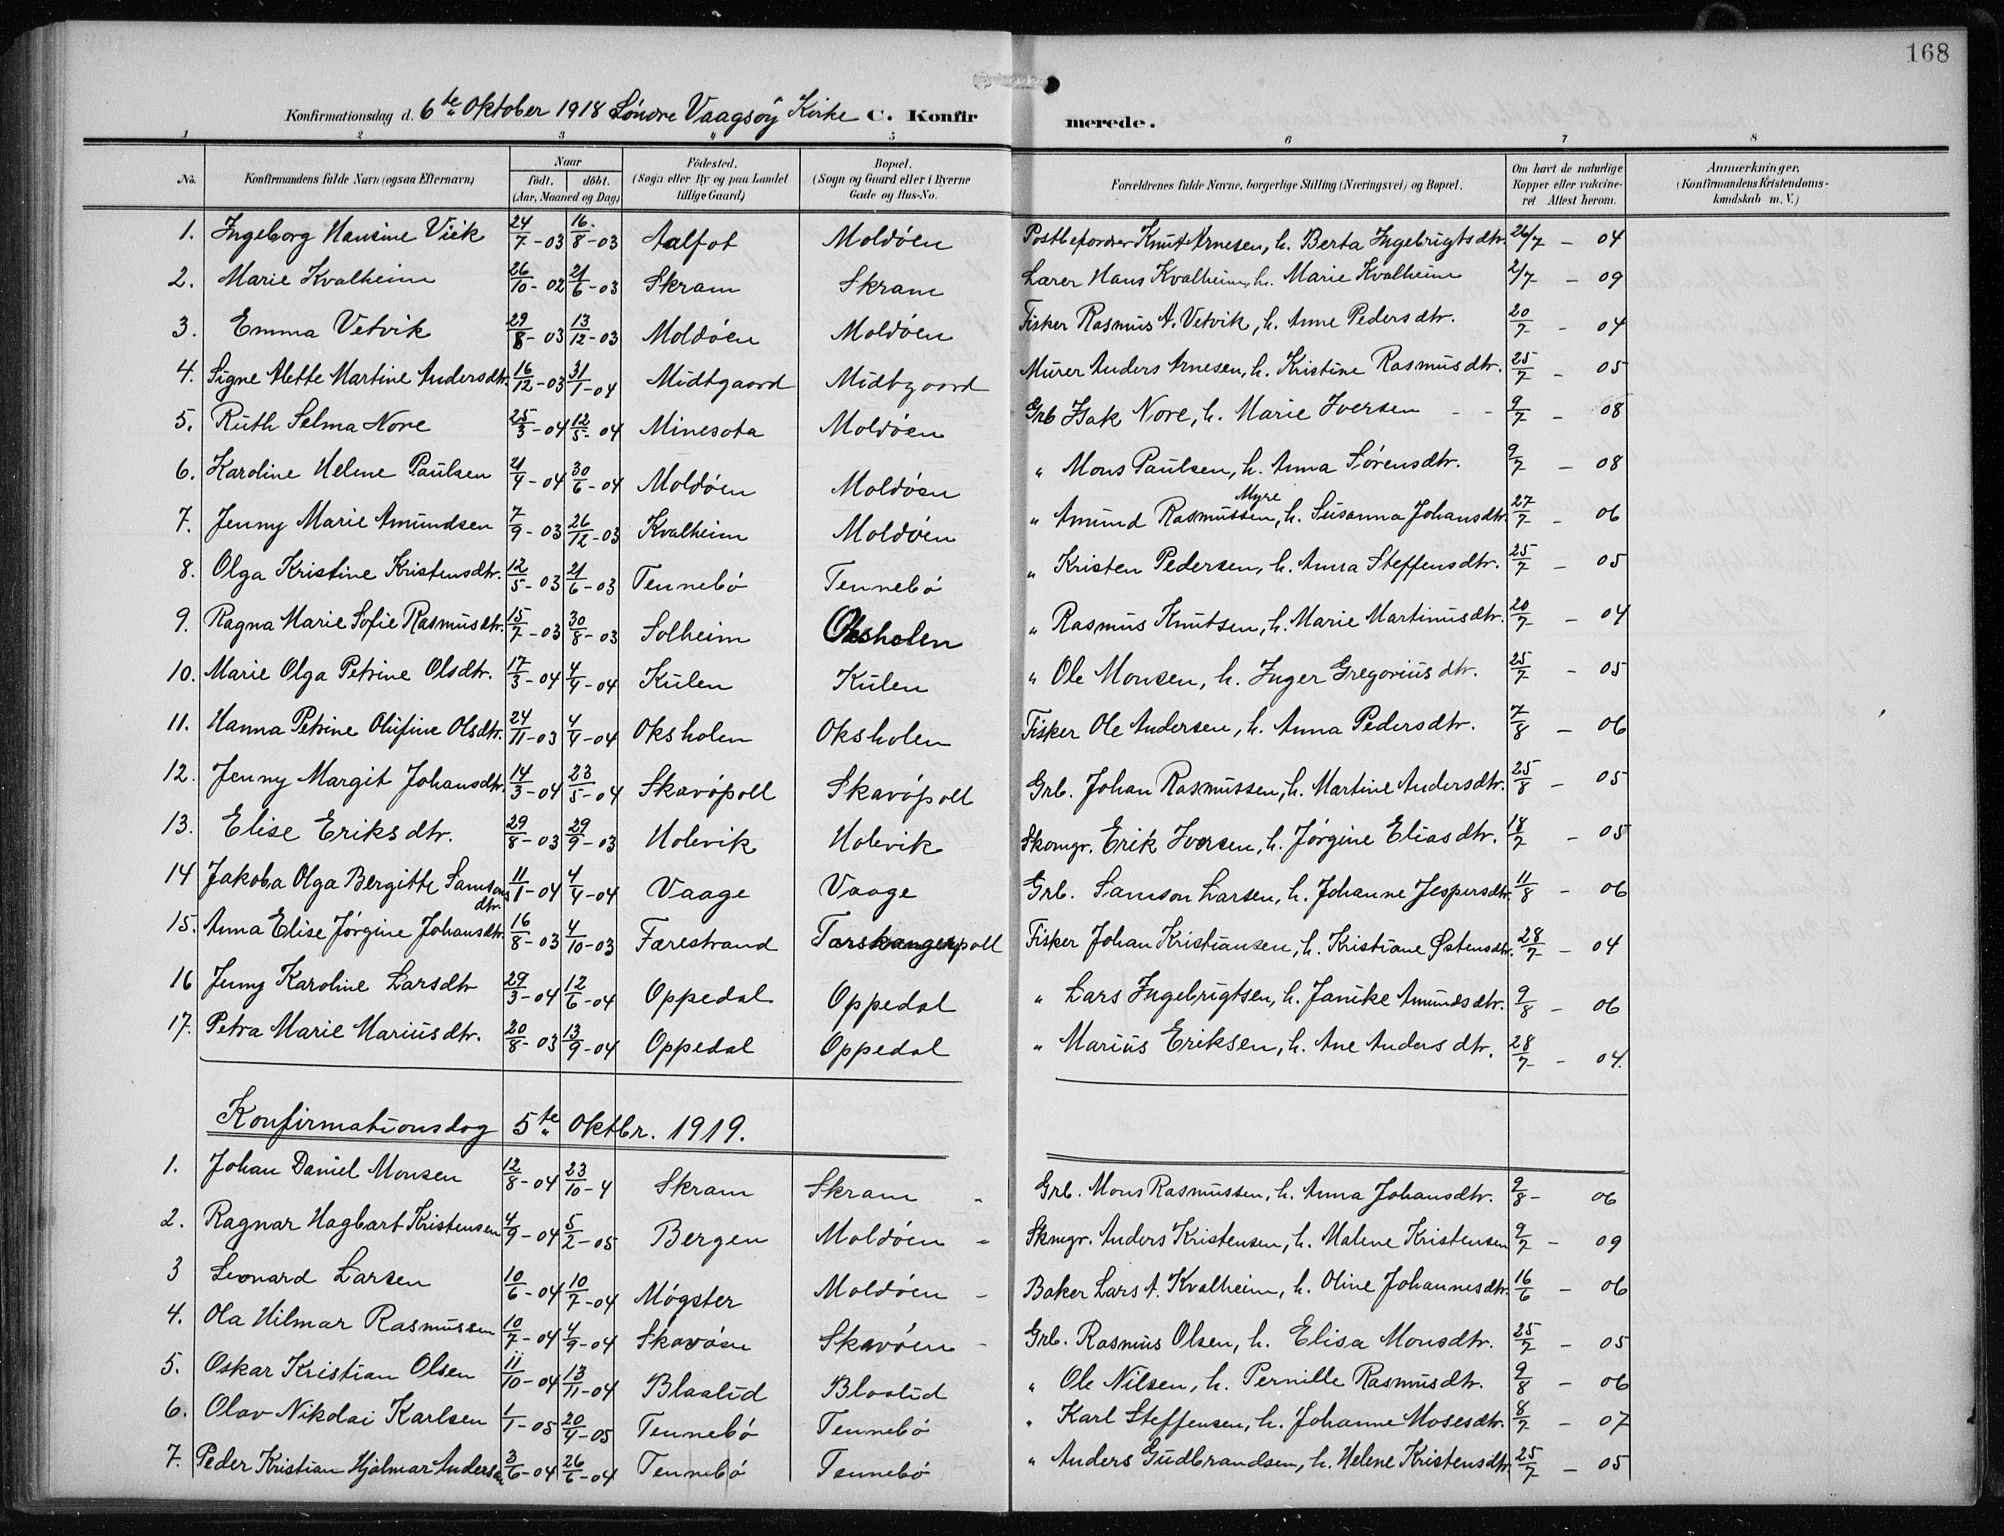 168
Konfirmationsdag d. 6te Oktober 1918 Søndre Vaagsøy Kirke C. Konfirmerede.
1 2 3 4 5 6 7 8
No. Konfirmandens fulde Navn (ogsaa Efternavn) Naar født. døbt. (Aar, Maaned og Dag) Födested. (Sogn eller By og paa Landet tillige Gaard) Bopæl. (Sogn og Gaard eller i Byerne Gade og Hus-No. Forældrenes fulde Navne, borgerlige Stilling (Næringsvei) og Bopæl. Om havt de naturlige Kopper eller vakcineret Attest herom. Anmærkninger. (Konfirmandens Kristendomskundskab m. V.)
1. Ingeborg Hansine Vik 24/7-03 16/8-03 Aalfot Moldøen Postbefordrer Knut Arnesen, h. Berta Ingebrigtsdtr. 26/7 - 04
2. Marie Kvalheim 26/10-02 21/6-03 Skram Skram Lærer Hans Kvalheim, h. Marie Kvalheim 2/7 - 09
3. Emma Vetvik 29/8-03 13/12-03 Moldøen Moldøen Fisker Rasmus A. Vetvik, h. Anne Pedersdtr. 20/7 - 04
4. Signe Alette Martine Andersdtr. 16/12-03 31/1-04 Midtgaard Midtgaard Murer Anders Arnesen, h. Kristine Rasmusdtr. 25/7 - 05
5. Ruth Selma Nore 25/3-04 12/5-04 Minesota Moldøen Grb Isak Nore, h. Marie Iversen - - 9/7 - 08
6. Karoline Helene Paulsen 21/4-04 30/6-04 Moldøen Moldøen " Mons Paulsen, h. Anna Sørensdtr. 9/7 - 08
7. Jenny Marie Amundsen 7/9-03 26/12-03 Kvalheim Moldøen " Amund Rasmussen Myre, h. Susanna Johansdtr. 27/7 - 06
8. Olga Kristine Kristensdtr. 12/5-03 21/6-03 Tennebø Tennebø " Kristen Pedersen, h. Anna Steffensdtr. 25/7 - 05
9. Ragna Marie Sofie Rasmusdtr. 15/7-03 30/8-03 Solheim Oksholen " Rasmus Knutsen, h. Marie Martinusdtr. 20/7 - 04
10. Marie Olga Petrine Olsdtr. 17/3-04 4/4-04 Kulen Kulen " Ole Monsen, h. Inger Gregoriusdtr. 25/7 - 05
11. Hanna Petrine Olufine Olsdtr. 24/11-03 4/4-04 Oksholen Oksholen Fisker Ole Andersen, h. Anna Pedersdtr. 7/8 - 06
12. Jenny Margit Johansdtr. 14/3-04 23/5-04 Skavøpoll Skavøpoll Grb. Johan Rasmussen, h. Martine Andersdtr. 25/8 - 05
13. Elise Eriksdtr. 29/8-03 29/9-03 Holevik Holevik Skomgr. Erik Iversen, h. Jørgine Eliasdtr. 18/7 - 05
14 Jakoba Olga Bergitte Samsonsdtr. 11/1-04 4/4-04 Vaage Vaage Grb. Samson Larsen, h. Johanne Jespersdtr. 11/8 - 06
15. Anna Elise Jørgine Johansdtr. 16/8-03 4/10-03 Færestrand Torskangerpoll Fisker Johan Kristiansen, h. Kristiane Østensdtr. 28/7 - 04
16 Jenny Karoline Larsdtr 29/3-04 12/6-04 Oppedal Oppedal " Lars Ingebrigtsen, h. Janike Amundsdtr. 9/8 - 06
17. Petra Marie Mariusdtr. 20/8-03 13/9-04 Oppedal Oppedal " Marius Eriksen, h. Ane Andersdtr. 28/7 - 04.
Konfirmationsdag 5te Oktbr. 1919.
1. Johan Daniel Monsen 12/8-04 23/10-4 Skram Skram - Grb. Mons Rasmussen, h. Anna Johansdtr. 9/8- 06
2. Ragnar Hagbart Kristensen 4/9-04 5/2-05 Bergen Moldøen - Skmgr. Anders Kristensen, h. Malene Kristensen 9/7 - 09
3 Leonard Larsen 10/6-04 10/7-04 Møgster Moldøen - Baker Lars A. Kvalheim, h. Oline Johannesdtr. 16/6 - 06
4. Ola Hilmar Rasmussen 10/7-04 4/9-04 Skavøen Skavøen - Grb. Rasmus Olsen, h. Elisa Monsdtr. 25/7 - 05
5. Oskar Kristian Olsen 11/10-04 13/11-04 Blaalid Blaalid " Ole Nilsen, h. Pernille Rasmusdtr. 9/8 - 06
6. Olav Nikolai Karlsen 1/1-05 20/4-05 Tennebø Tennebø " Karl Steffensen, h. Johanne Mosesdtr. 8/7 - 07
7. Peder Kristian Hjalmar Andersen 3/6-04 26/6-04 Tennebø Tennebø " Anders Gudbrandsen, h. Helene Kristensdtr. 25/7 - 05